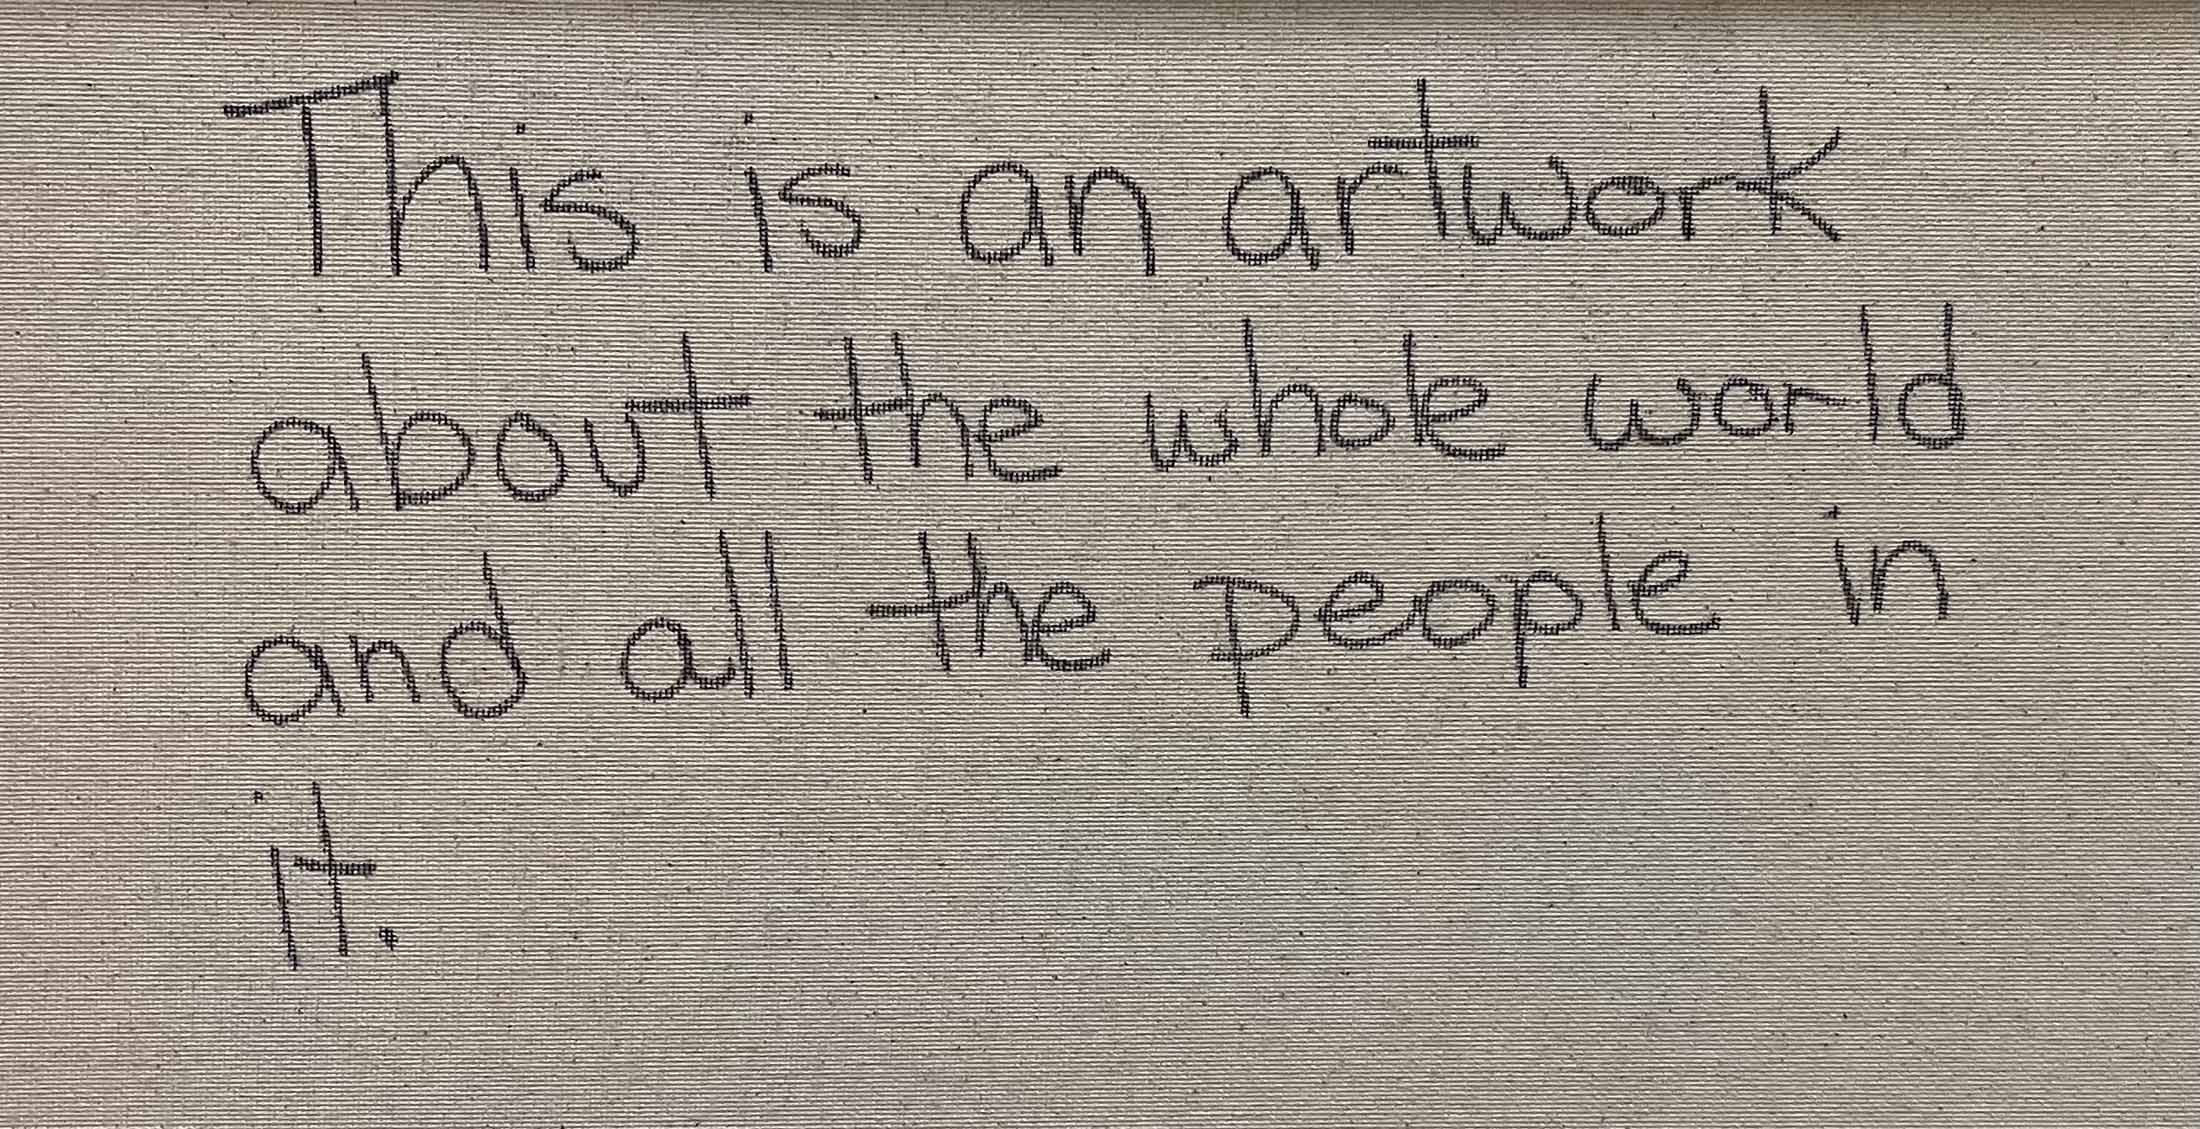 This is an artwork
about the whole world
and all the people in
it.